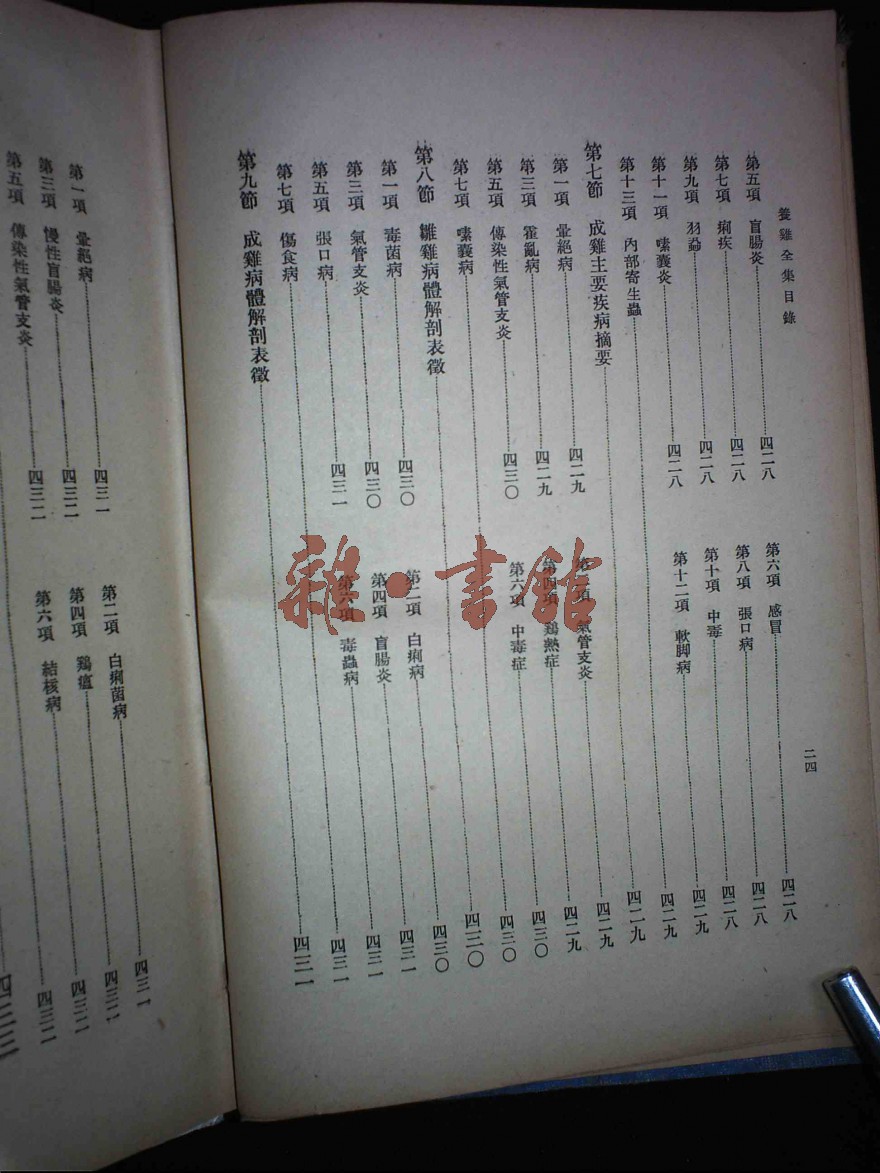 養雞全集目錄 二四
第五項 盲腸炎 四二八 第六項 感冒 四二八
第七項 痢疾 四二八 第八項 張口病 四二八
第九項 羽蝨 四二八 第十項 中毒 四二八
第十一項 嗉囊炎 四二八 第十二項 軟脚病 四二九
第十三項 內部寄生蟲 四二九
第七節 成雞主要疾病摘要 四二九
第一項 暈絕病 四二九 第二項 氣管支炎 四二九
第三項 霍亂病 四二九 第四項 鷄熱症 四二九
第五項 傳染性氣管支炎 四三〇 第六項 中毒症 四三〇
第七項 嗉囊病 四三〇
第八節 雛雞病體解剖表徵 四三〇
第一項 毒菌病 四三〇 第二項 白痢病 四三〇
第三項 氣管支炎 四三〇 第四項 盲腸炎 四三一
第五項 張口病 四三一 第六項 毒蟲病 四三一
第七項 傷食病 四三一
第九節 成雞病體解剖表徵 四三一
第一項 暈絕病 四三一 第二項 白痢菌病 四三一
第三項 慢性盲腸炎 四三二 第四項 鷄瘟 四三二
第五項 傳染性氣管支炎 四三二 第六項 結核病 四三二
四三三
雜·書館